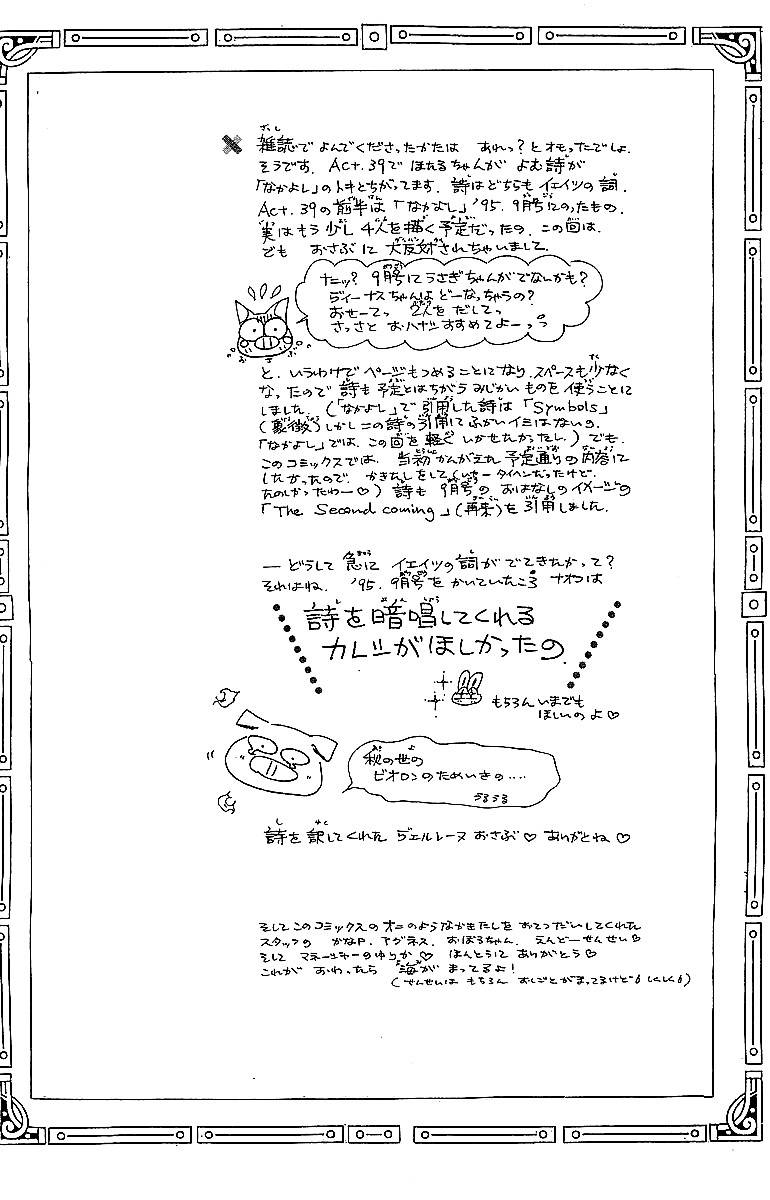 雑誌で よんでくださったかたは あれっ?とオモったでしょ。
そうです. Act.39で ほたるちゃんが よむ詩が
「なかよし」のトキとちがってます. 詩はどちらも イェイツの詞.
Act.39の前半は「なかよし」'95. 9月号にのったもの.
実はもう少し 4人を描く予定だったの. この回は.
でも おさぶに 大反対されちゃいまして.
ナニッ? 9月号にうさぎちゃんがでないかも?
ヴィーナスちゃんは どーなっちゃうの?
おせーてっ 2人を だしてっ
さっさと おハナシすすめてよーっっ
おさぶ
と. いうわけで ページもつめることになり. スペースも少なく
なったので 詩も 予定とはちがう みじかい ものを 使うことに
しました. (「なかよし」で 引用した詩は「Symbols」
(裏徴)しかしこの詩の引用にふかいイミはないの.
「なかよし」では. この回を 軽ぐ いかせたかったし.) でも.
このコミックスでは. 当初 かんがえた 予定通りの内容に
したかったので. かきたしをして(いやータイヘンだったけど.
たのしかったわー♡) 詩も 9月号の おはなしのイメージの
「The Second coming」(再来)を 引用しました.
— どうして 急に イェイツの詞がでてきたかって?
それはね. '95. 9月号を かいていたころ ナオコは
詩を暗唱してくれる
カレシがほしかったの.
もちろん いまでも
ほしいのよ♡
秋の世の
ビオロンのためいきの....
うるうる
詩を 訳してくれた ヴェルレーヌ おさぶ♡ ありがとね♡
そしてこのコミックスの オニのようなかきたしを おてつだいしてくれた
スタッフの かなP. アグネス. おぼろちゃん. えんどーせんせい♡
そして マネージャーのゆりか♡ ほんとうに ありがとう♡
これが おわったら 海が まってるよ!
(せんせいは もちろん おしごとがまってるけど しくしく)